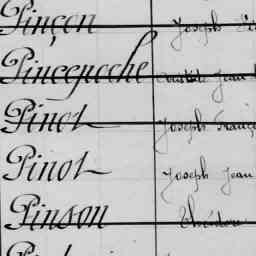 Pinçon Joseph
Pincepoche Jean
Pinot Joseph
Pinot Joseph Jean
Pinson Théodore